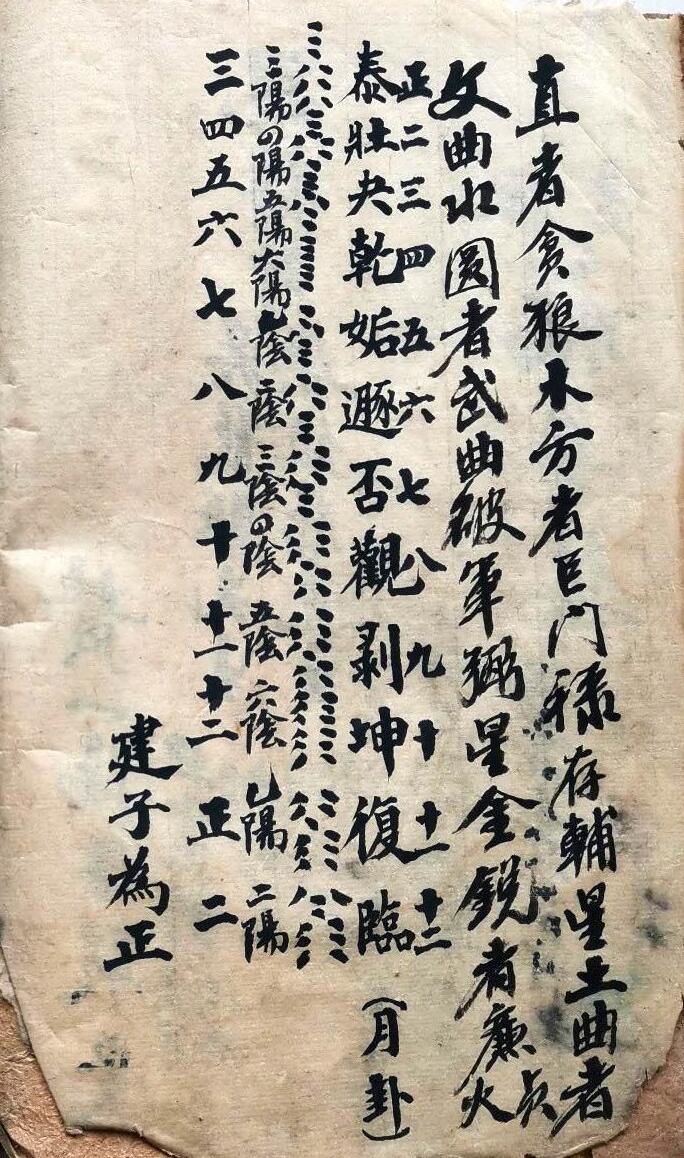 直者貪狼木方者巨門祿存輔星土曲者
文曲水圓者武曲破軍弼星金銳者廉貞火
正二三四五六七八九十十一十二
泰壯夬乾姤遯否觀剥坤復臨(月卦)
三陽四陽五陽六陽乙陰二陰三陰四陰五陰六陰乙陽二陽
三四五六七八九十十一十二正二
建子為正